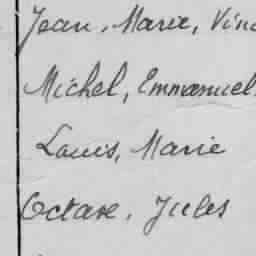 Jean, Marie, Vinc
Michel, Emmanuel
Louis, Marie
Octave, Jules